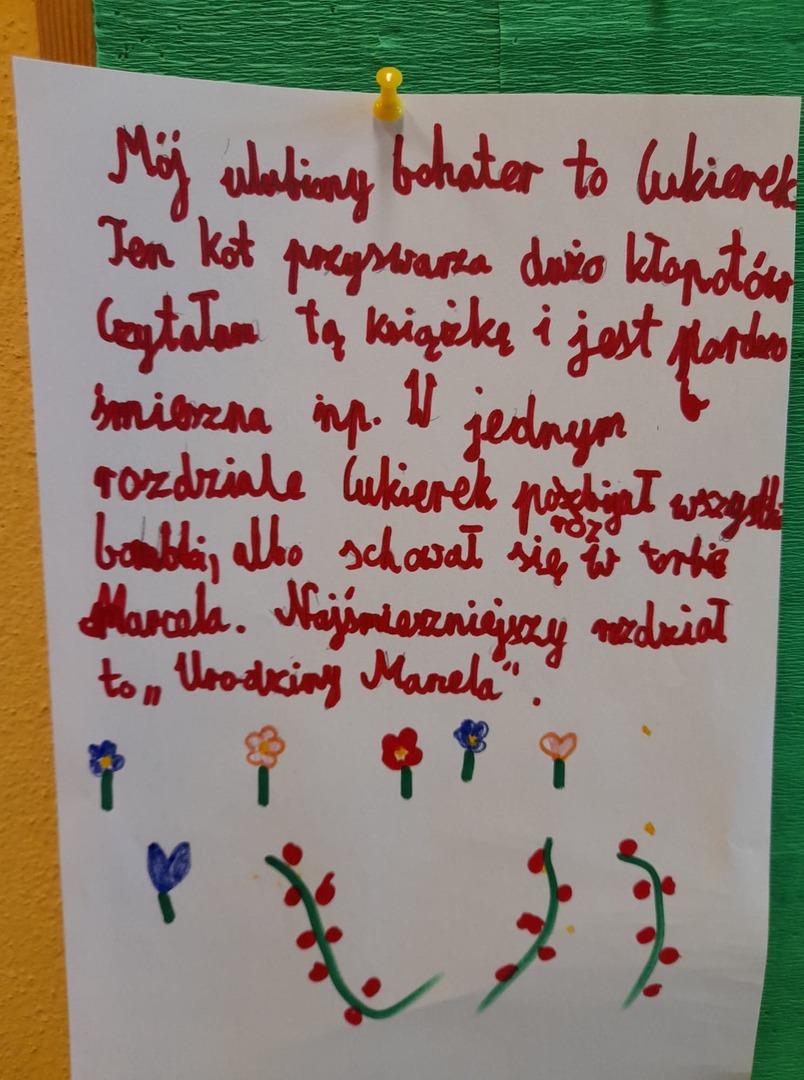 Mój ulubiony bohater to Cukierek.
Ten kot przyswarza dużo kłopotów
Czytałam tą książkę i jest bardzo
śmieszna np. W jednym
rozdziale Cukierek pozbijał wszystki
bombki, albo schował się w torbie
Marcela. Najśmieszniejszy rozdział
to „Urodziny Marcela".